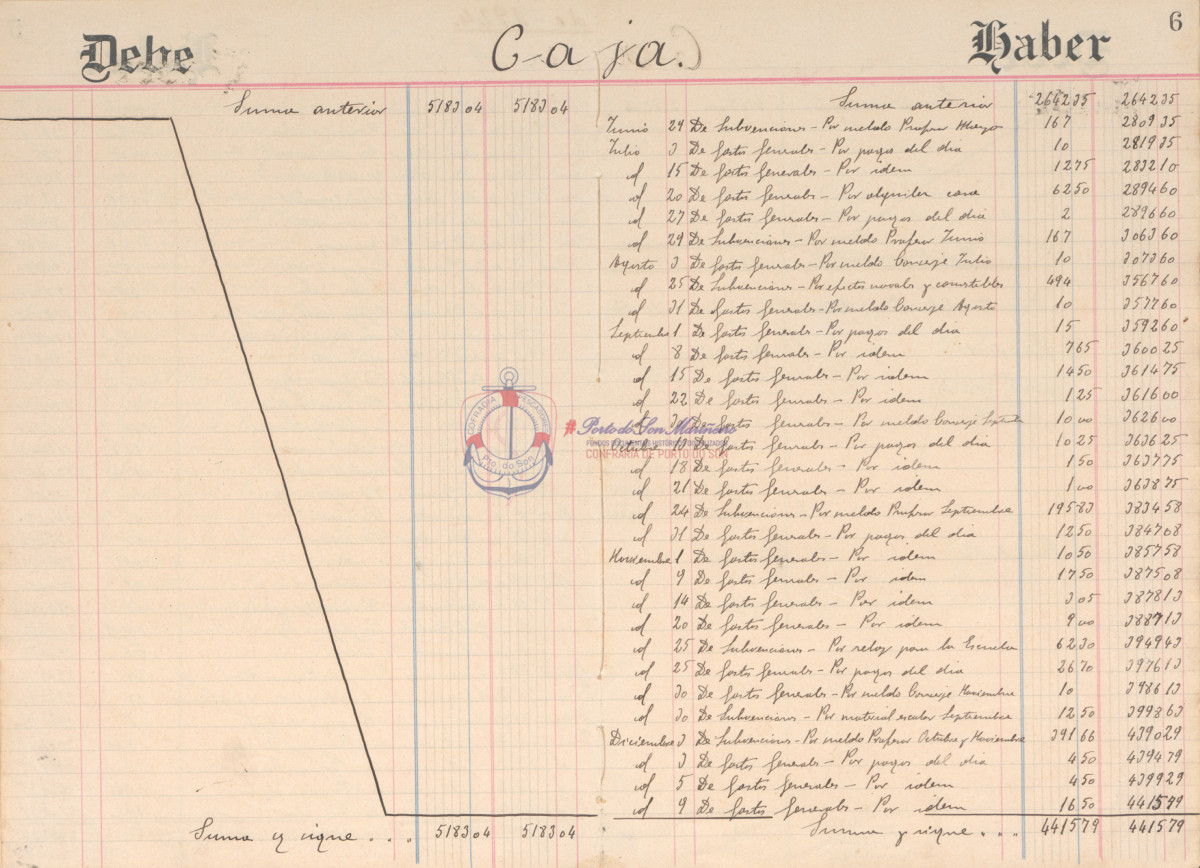 Debe Caja. Haber 6
Suma anterior 5183 04 5183 04
Suma y sigue . . . 5183 04 5183 04
Suma anterior 2642 35 2642 35
Junio 29 De Subvenciones - Por sueldo Profesor Mayo 167 2809 35
Julio 3 De Gastos Generales - Por pagos del dia 10 2819 35
id 15 De Gastos Generales - Por idem 12 75 2832 10
id 20 De Gastos Generales - Por alquiler casa 62 50 2894 60
id 27 De Gastos Generales - Por pagos del dia 2 2896 60
id 29 De Subvenciones - Por sueldo Profesor Junio 167 3063 60
Agosto 3 De Gastos Generales - Por sueldo Conserje Julio 10 3073 60
id 25 De Subvenciones - Por efectos navales y comestibles 494 3567 60
id 31 De Gastos Generales - Por sueldo Conserje Agosto 10 3577 60
Septiembre 1 De Gastos Generales - Por pagos del dia 15 3592 60
id 8 De Gastos Generales - Por idem 7 65 3600 25
id 15 De Gastos Generales - Por idem 14 50 3614 75
id 22 De Gastos Generales - Por idem 1 25 3616 00
De Gastos Generales - Por sueldo Conserje Septiembre 10 00 3626 00
Octubre 13 De Gastos Generales - Por pagos del dia 10 25 3636 25
id 18 De Gastos Generales - Por idem 1 50 3637 75
id 21 De Gastos Generales - Por idem 1 00 3638 75
id 24 De Subvenciones - Por sueldo Profesor Septiembre 195 83 3834 58
id 31 De Gastos Generales - Por pagos del dia 12 50 3847 08
Noviembre 1 De Gastos Generales - Por idem 10 50 3857 58
id 9 De Gastos Generales - Por idem 17 50 3875 08
id 14 De Gastos Generales - Por idem 3 05 3878 13
id 20 De Gastos Generales - Por idem 9 00 3887 13
id 25 De Subvenciones - Por reloj para la Escuela 62 30 3949 43
id 25 De Gastos Generales - Por pagos del dia 26 70 3976 13
id 30 De Gastos Generales - Por sueldo Conserje Noviembre 10 3986 13
id 30 De Subvenciones - Por material escolar Septiembre 12 50 3998 63
Diciembre 3 De Subvenciones - Por sueldo Profesor Octubre y Noviembre 391 66 4390 29
id 3 De Gastos Generales - Por pagos del dia 4 50 4394 79
id 5 De Gastos Generales - Por idem 4 50 4399 29
id 9 De Gastos Generales - Por idem 16 50 4415 79
Suma y sigue . . . 4415 79 4415 79
COFRADÍA PESCADORES
Pto. do Son
#Porto do Son Mariñeiro
CONFRARÍA DE PORTO DO SON